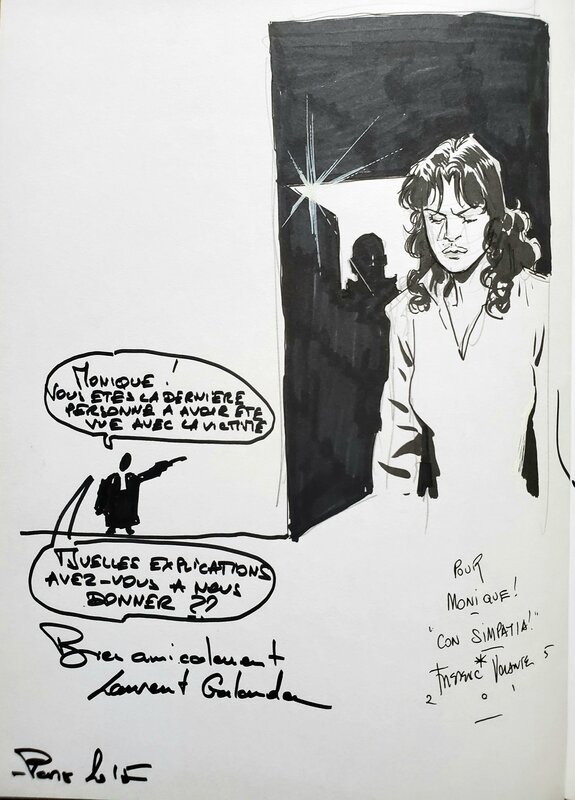 MONIQUE!
VOUS ETES LA DERNIERE
PERSONNE A AVOIR ETE
VUE AVEC LA VICTIME
QUELLES EXPLICATIONS
AVEZ-VOUS A NOUS
DONNER ??
Bien amicalement
Laurent Galandon
POUR
MONIQUE!
"CON SIMPATIA!"
VOLANTE
2 0 1 5